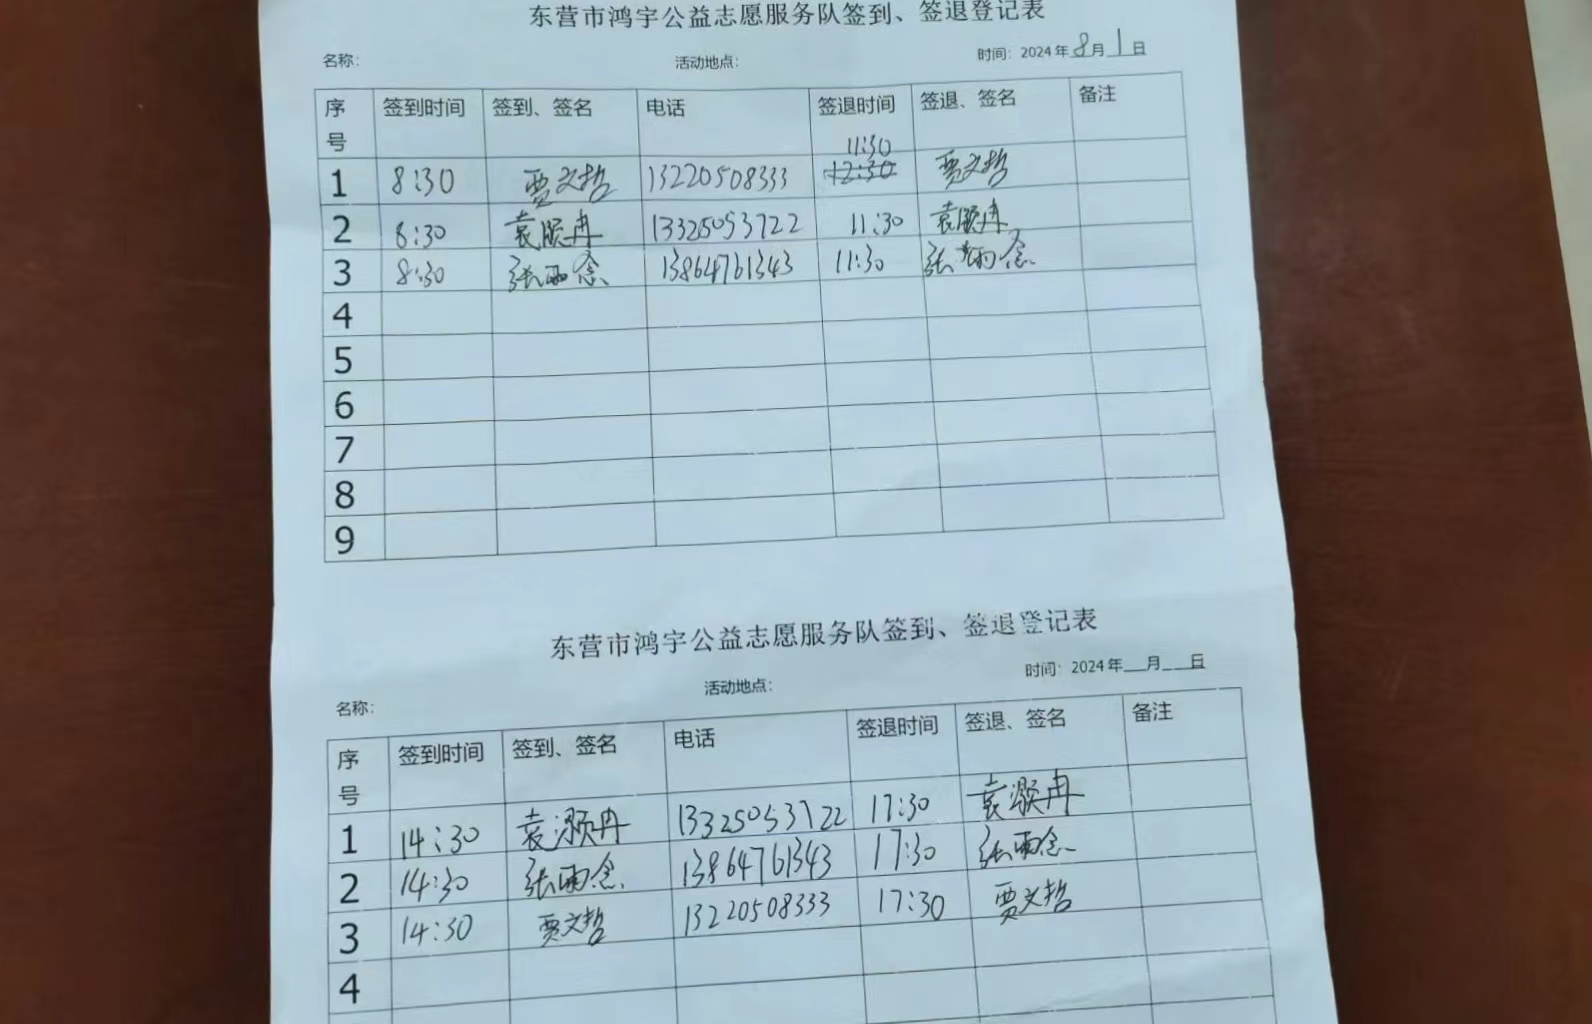 东营市鸿宇公益志愿服务队签到、签退登记表
名称： 活动地点： 时间：2024年8月1日
序号 签到时间 签到、签名 电话 签退时间 签退、签名 备注
11:30
1 8:30 贾文哲 13220508333 12:30 贾文哲
2 8:30 袁灏冉 13325053722 11:30 袁灏冉
3 8:30 张雨念 13864761343 11:30 张雨念
4
5
6
7
8
9
东营市鸿宇公益志愿服务队签到、签退登记表
名称： 活动地点： 时间：2024年__月__日
序号 签到时间 签到、签名 电话 签退时间 签退、签名 备注
1 14:30 袁灏冉 13325053722 17:30 袁灏冉
2 14:30 张雨念 13864761343 17:30 张雨念
3 14:30 贾文哲 13220508333 17:30 贾文哲
4